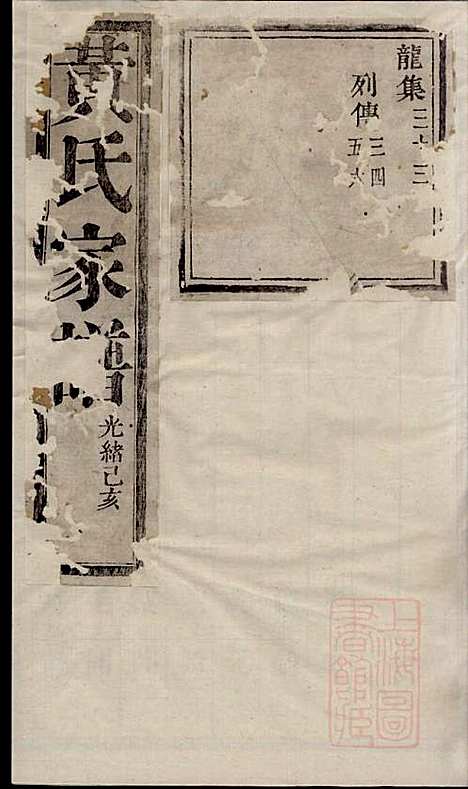 龍集三十三
列傳三四
五六
黃氏家譜
光緒己亥
上海圖
書館